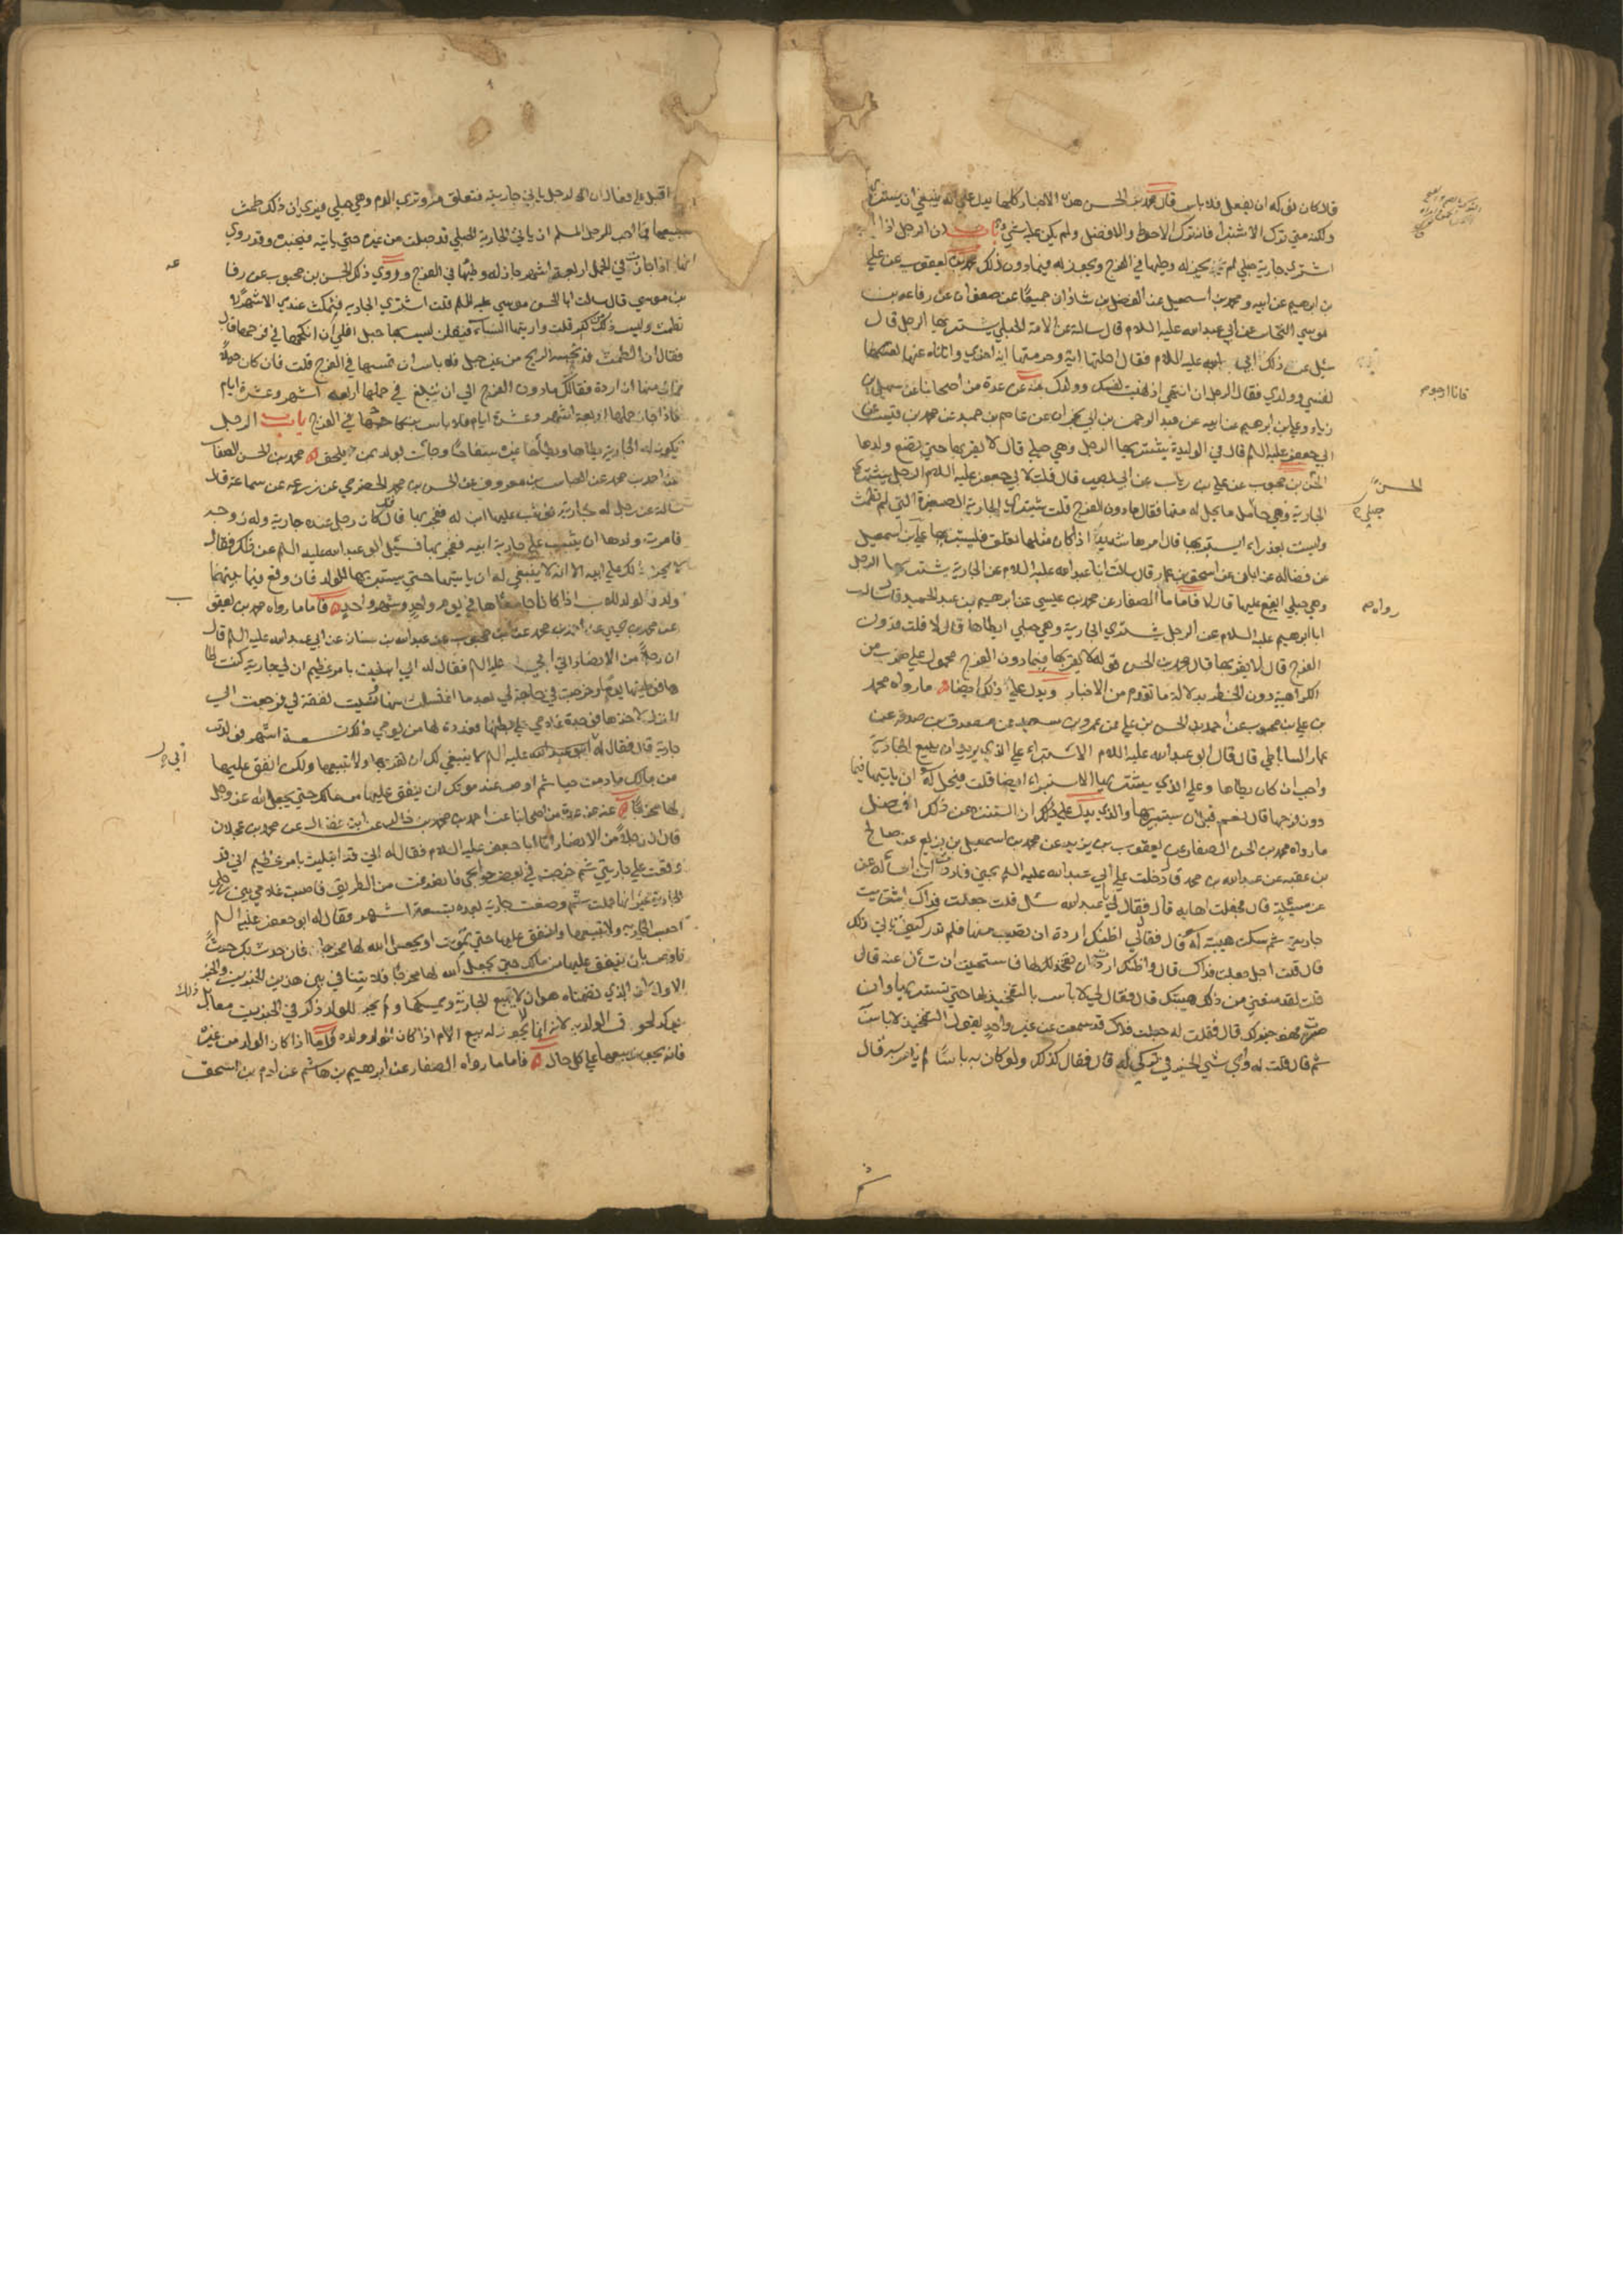 قال كان نوى كه ان يفعل فلا باس قال محمد بن الحسن هذه الاخبار كلها تدل على انه ينبغي ان يستبري
ولكنه متى ترك الاستبراء فانه ترك الاحوط والافضل ولم يكن عليه شيء باب ان الرجل اذا
اشترى جارية حبلى لم يجز له وطيها في الفرج ويجوز له فيما دون ذلك محمد بن يعقوب عن علي
بن ابرهيم عن ابيه ومحمد بن اسمعيل عن الفضل بن شاذان جميعا عن صفوان عن رفاعة بن
موسى النخاس عن ابي عبد الله عليه السلام قال سالته عن الامة الحبلى يشتريها الرجل قال
سئل عن ذلك ابي عليه السلام فقال احلتها اية وحرمتها اية اخرى وانا ناه عنها
نفسي وولدي فقال الرجل ان انتهي اذ نهيت نفسك وولدك عنه عن عدة من اصحابنا عن سهل بن
زياد وعلي بن ابرهيم عن ابيه عن عبد الرحمن بن ابي نجران عن عاصم بن حميد عن محمد بن قيس عن
ابي جعفر عليه السلم قال في الوليدة يشتريها الرجل وهي حبلى قال لا يقربها حتى تضع ولدها
الحسن بن محبوب عن علي بن رياب عن ابي بصير قال قلت لابي جعفر عليه السلام الرجل يشتري
الجارية وهي حامل ما يحل له منها فقال ما دون الفرج قلت يشتري الجارية الصغيرة التي لم تطمث
وليست بعذراء ايستبريها قال امرها شديد اذا كان مثلها تعلق فليستبريها علي بن اسمعيل
عن فضاله عن ابان عن اسحق بن عمار قال سالت ابا عبد الله عليه السلام عن الجارية يشتريها الرجل
وهي حبلى ايقع عليها قال لا فاما ما الصفار عن محمد بن عيسى عن ابرهيم بن عبد الحميد قال سالت
ابا ابرهيم عليه السلام عن الرجل يشتري الجارية وهي حبلى ايطاها قال لا قلت فدون
الفرج قال لا يقربها قال محمد بن الحسن قوله لا يقربها فيما دون الفرج محمول على ضرب من
الكراهية دون الحظر بدلالة ما تقدم من الاخبار ويدل على ذلك ايضا ما رواه محمد
بن علي بن محبوب عن احمد بن الحسن بن علي عن عمرو بن سعيد عن مصدق بن صدقه عن
عمار الساباطي قال قال ابو عبد الله عليه السلام الاستبراء على الذي يريد ان يبيع الجارية
واجب ان كان يطاها وعلى الذي يشتريها الاستبراء ايضا قلت فيحل له ان ياتيها فيما
دون فرجها قال نعم قبل ان يستبريها والذي يدل على ذلك ان التنزه عن ذلك افضل
ما رواه محمد بن الحسن الصفار عن يعقوب بن يزيد عن محمد بن اسمعيل بن بزيع عن صالح
بن عقبه عن عبد الله بن محمد قال دخلت على ابي عبد الله عليه السلم بمنى فاردت ان اساله عن
عن مسئلة قال فجعلت اهابه قال فقال لي يا عبد الله سل قال قلت جعلت فداك اشتريت
جارية ثم سكت هيبة له قال فقال لي اظنك اردت ان تصيب منها فلم تدر كيف تاتي ذلك
قال قلت اجل جعلت فداك قال واظنك اردت ان تفخذ لها فاستحييت ان تسأل عنه قال
قلت لقد منعني من ذلك هيبتك قال فقال لي لا باس بالتفخيذ لها حتى تستبريها وان
صبرت فهو خير لك قال فقلت له جعلت فداك قد سمعت عن غير واحد يقول التفخيذ لا باس
ثم قال قلت له واي شي الخير في تركي له قال فقال كذلك ولو كان به باس لم نامر به قال
فانا ارجو
الحسن
حبلى
رواه
ثم
اقبل علي وقال ان الرجل ياتي جاريته فتعلق منه وترى الدم وهي حبلى فيرى ان ذلك طمث
فيبيعها فما احب للرجل المسلم ان ياتي الجارية الحبلى قد حبلت من غيره حتى ياتيه فيخبره وقد روي
انها اذا جازت في الحمل اربعة اشهر جاز له وطيها في الفرج وروى ذلك الحسن بن محبوب عن رفا
بن موسى قال سالت ابا الحسن موسى عليه السلم قلت اشتري الجارية فتمكث عندي الاشهر لا
تطمث وليس ذلك من كبر قلت واريتها النساء فيقلن ليس بها حبل افلي ان انكحها في فرجها قال
فقال ان الطمث قد تحبسه الريح من غير حبل فلا باس ان تمسها في الفرج قلت فان كان حبلا
فما لي منها ان اردت فقال لك ما دون الفرج الى ان تبلغ في حملها اربعه اشهر وعشرة ايام
فاذا جاز حملها اربعة اشهر وعشرة ايام فلا باس بنكاحها في الفرج باب الرجل
تكون له الجارية يطاها ويطاها غيره سفاحا وجاءت بولد بمن يلحق محمد بن الحسن الصفار
عن احمد بن محمد عن العباس بن معروف عن الحسن بن محمد الحضرمي عن زرعه عن سماعة قال
سالته عن رجل له جارية فوثب عليها ابن له ففجر بها قال قد كان رجل عنده جارية وله زوجة
فامرت ولدها ان يثب على جارية ابيه ففجر بها فسئل ابو عبد الله عليه السلم عن ذلك فقال
لا يحرم ذلك على ابيه الا انه لا ينبغي له ان ياتيها حتى يستبريها للولد فان وقع فيما بينهما
ولد فالولد للاب اذا كانا جامعاها في يوم واحد وشهر واحد فاما ما رواه محمد بن يعقوب
عن محمد بن يحيى عن احمد بن محمد عن ابن محبوب عن عبد الله بن سنان عن ابي عبد الله عليه السلم قال
ان رجلا من الانصار اتى ابي عليه السلم فقال له اني ابتليت بامر عظيم ان لي جارية كنت اطا
ها فوطيتها يوما وخرجت في حاجة لي بعد ما اغتسلت منها ونسيت نفقة لي فرجعت الى
المنزل لاخذها فوجدت غلامي على بطنها فعددت لها من يومي ذلك تسعة اشهر فولدت
جارية قال فقال له ابي عليه السلم لا ينبغي لك ان تقربها ولا تبيعها ولكن انفق عليها
من مالك ما دمت حيا ثم اوص عند موتك ان ينفق عليها من مالك حتى يجعل الله عز وجل
لها مخرجا عنه عن عدة من اصحابنا عن احمد بن محمد بن خالد عن ابن فضال عن محمد بن عجلان
قال ان رجلا من الانصار اتى ابا جعفر عليه السلام فقال له اني قد ابتليت بامر عظيم اني قد
وقعت على جاريتي ثم خرجت في بعض حوائجي فانصرفت من الطريق فاصبت غلامي بين رجلي
الجارية فاعتزلتها فحبلت ثم وضعت جارية لعدة تسعة اشهر فقال له ابو جعفر عليه السلم
احبس الجارية ولا تبيعها وانفق عليها حتى تموت او يجعل الله لها مخرجا فان حدث بك حدث
فاوص بان ينفق عليها من مالك حتى يجعل الله لها مخرجا فلا ينافي بين هذين الخبرين والخبر
الاول لان الذي تضمناه هو ان لا يبيع الجارية ويمسكها ولم يجز للولد ذكر في الخبرين معا
لانه انما لا يجوز له بيع الام اذا كان الولد ولده فاما اذا كان الولد من غيره
فانه يجوز بيعها على كل حال فاما ما رواه الصفار عن ابرهيم بن هاشم عن ادم بن اسحق
عه